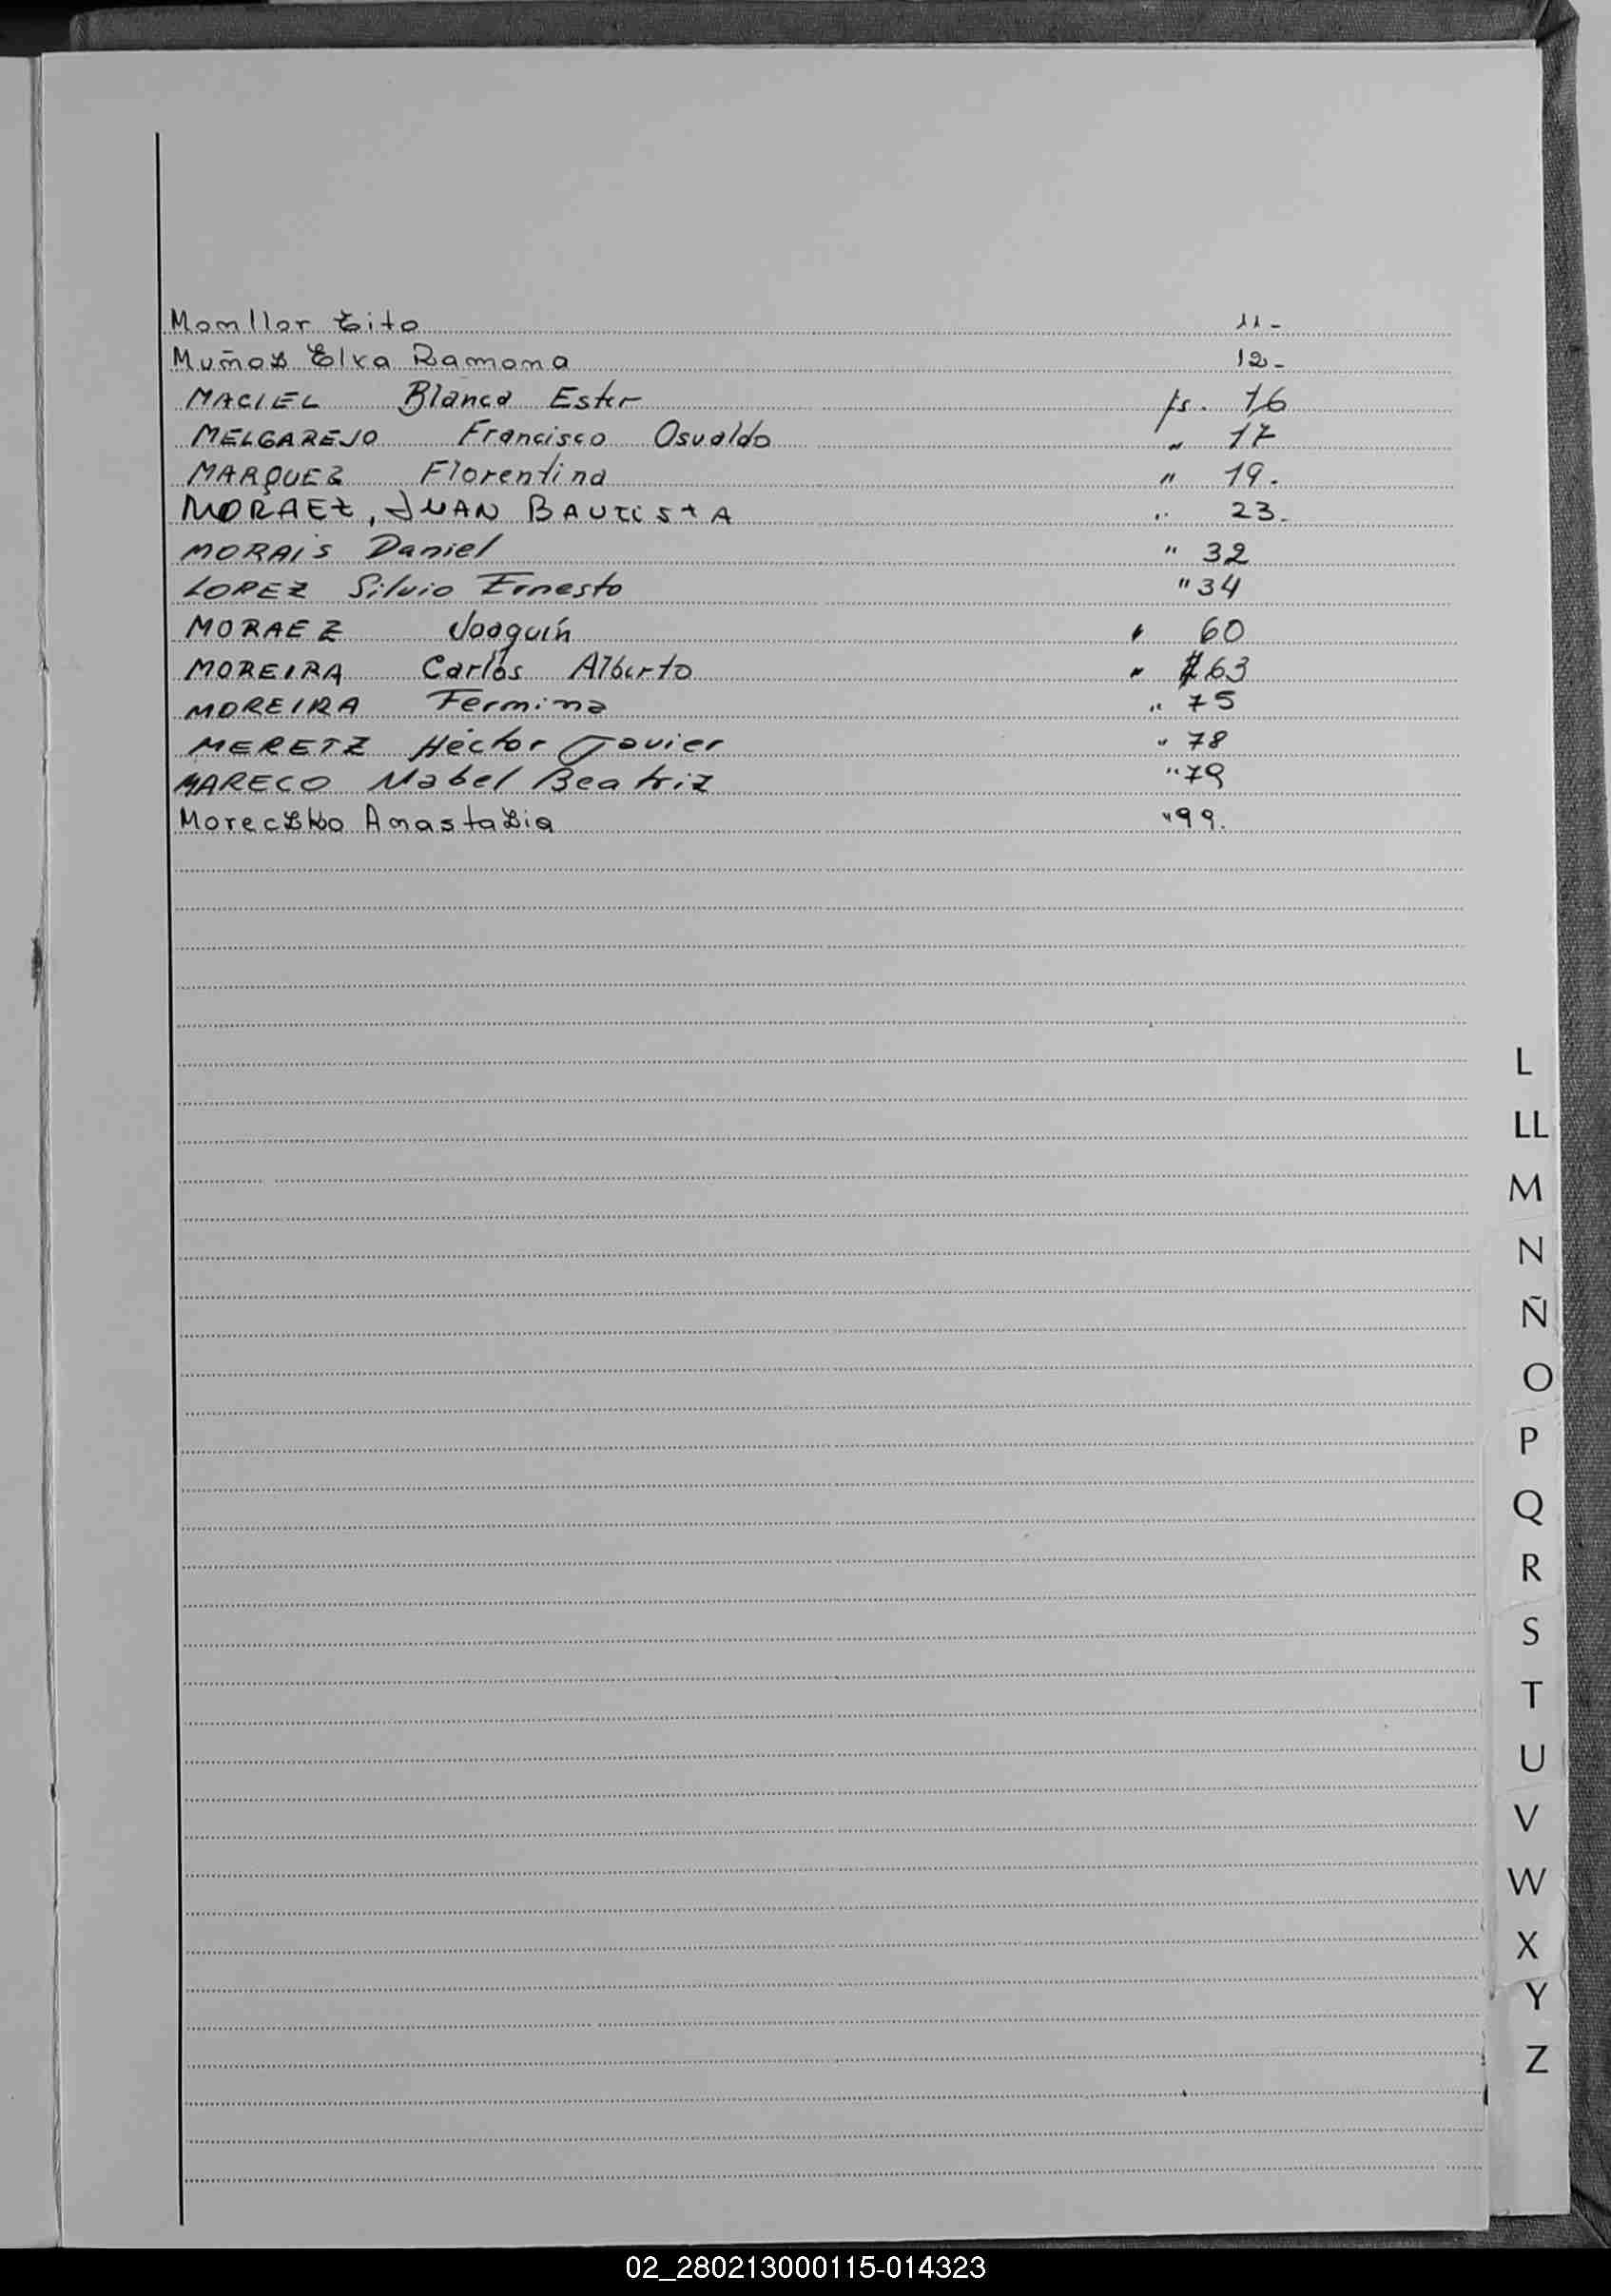 Momllor Tito 11-
Muñoz Elva Ramona 12-
MACIEL Blanca Ester fs. 16
MELGAREJO Francisco Osvaldo " 17
MARQUEZ Florentina " 19.
MORAEZ, JUAN BAUTISTA " 23-
MORAIS Daniel " 32
LOPEZ Silvio Ernesto " 34
MORAEZ Joaquín " 60
MOREIRA Carlos Alberto " 63
MOREIRA Fermina " 75
MERETZ Héctor Javier " 78
MARECO Mabel Beatriz " 79
Moreczko Anastazia " 99.
L
LL
M
N
Ñ
O
P
Q
R
S
T
U
V
W
X
Y
Z
02_280213000115-014323